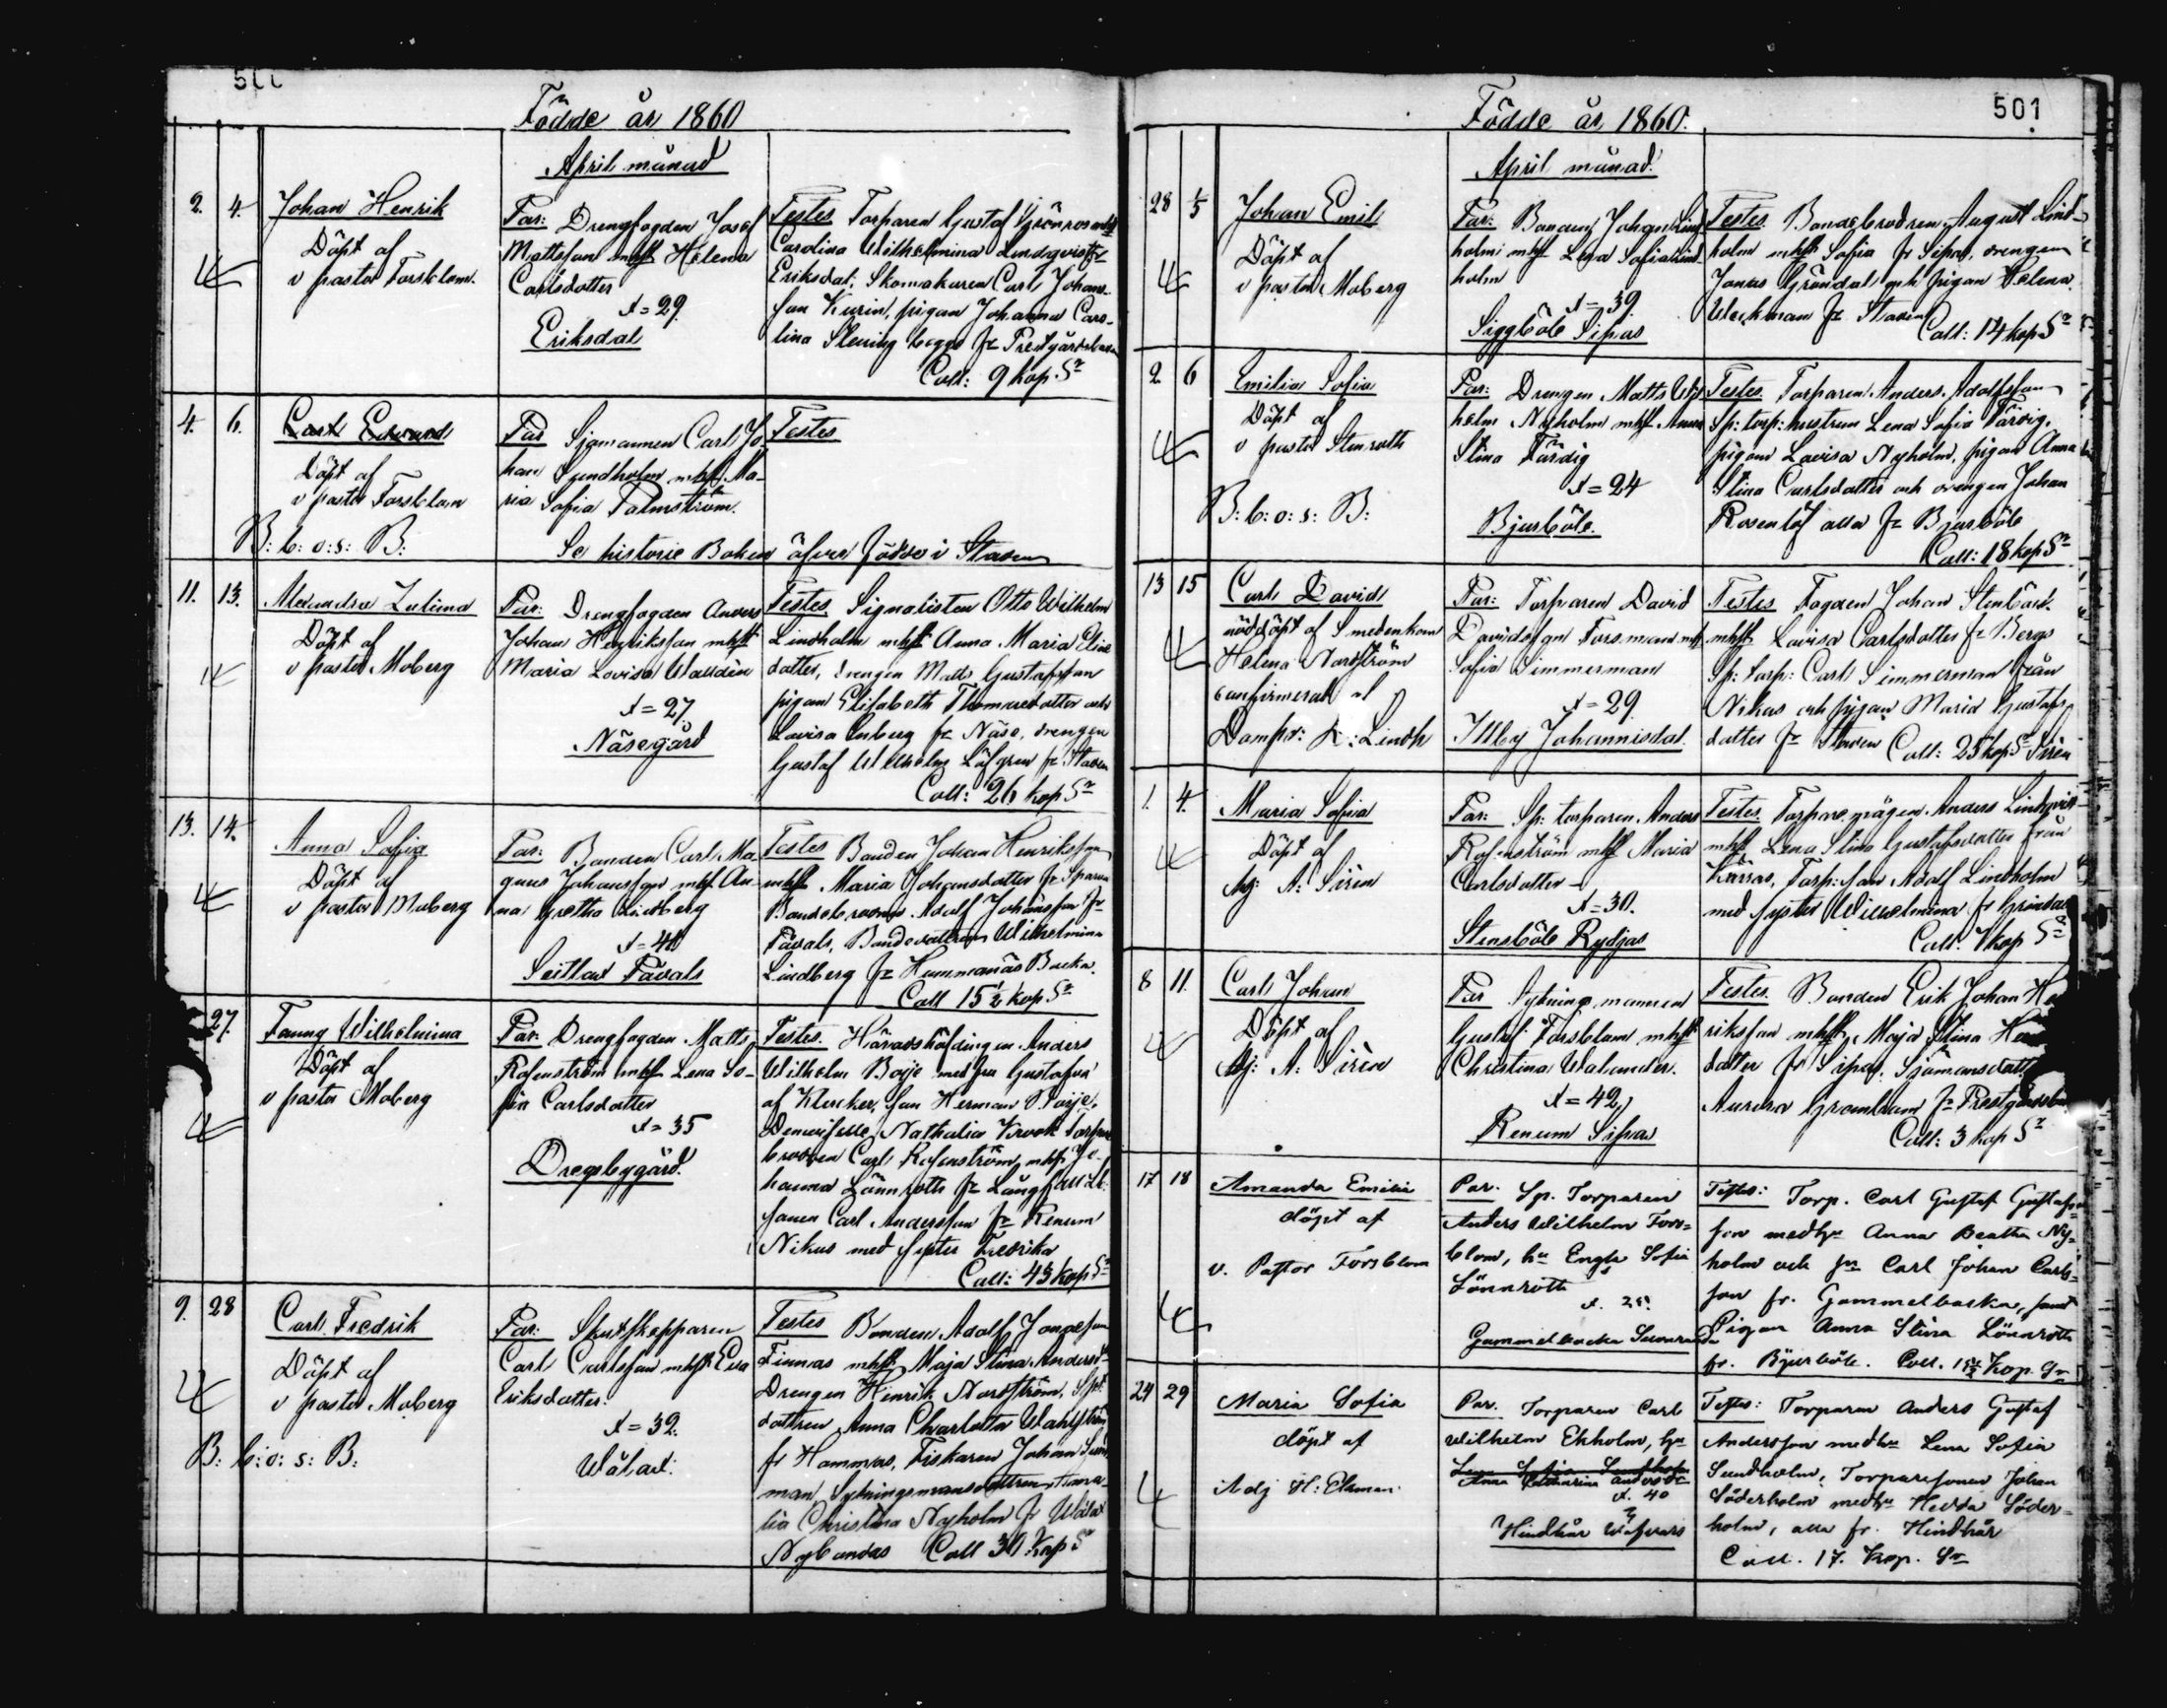 Födde år 1860
April månad
2. 4. Johan Henrik
Döpt af
v pastor Forsblom.
Par: Drengfogden Josef
Mattsson mhst Helena
Carlsdotter
x=29.
Eriksdal
Testes Torparen Gustaf
Carolina Wilhelmina Lindqvist fr
Eriksdal; Skomakaren Carl Johans-
son Kurin, pigan Johanna Caro-
lina Slening begge fr Prestgårdsbacka
Coll: 9 kop Sr
4. 6. Carl Edvard
Döpt af
v pastor Forsblom
B: b: o: s: B:
Par Sjömannen Carl Jo-
han Sundholm mhst Ma-
ria Sofia Palmström.
Testes
Se historie Boken öfver födde i Staden
11. 13. Alexandra Zulima
Döpt af
v pastor Moberg
Par: Drengfogden Anders
Johan Henriksson mhst
Maria Lovisa Walldén
x=27.
Näsegård
Testes Signalisten Otto Wilhelm
Lindholm mhst Anna Maria Elias
dotter, drengen Matts Gustafsson
pigan Elisabeth Thomasdotter och
Lovisa Enberg fr Näse, drengen
Gustaf Wilhelm Löfgren fr Staden
Coll: 26 kop Sr
13. 14. Anna Sofia
Döpt af
v pastor Moberg
Par: Bonden Carl Ma-
gnus Johansson mhst An-
na Gretha Lindberg
x=41
Seitlax Påvals
Testes Bonden Johan Henriksson
mhst Maria Johansdotter fr
Bondebrodren Adolf Johansson fr
Påvals, Bondedottren Wilhelmina
Lindberg fr Hummanäs Backa.
Coll 15 1/2 kop Sr
27. Fanny Wilhelmina
Döpt af
v pastor Moberg
Par: Drengfogden Matts
Rosenström mhst Lena So-
fia Carlsdotter
x=35
Drägsbygård.
Testes. Häradshöfdingen Anders
Wilhelm Boije med fru Gustafva
af Klercker, son Herman Boije,
Demoiselle Nathalia Krook
brodren Carl Rosenström mhst Jo-
hanna Lönnroth fr
sonen Carl Andersson fr Renum
Nikus med syster Fredrika
Coll: 43 kop Sr
9. 28 Carl Fredrik
Döpt af
v pastor Moberg
B: b: o: s: B:
Par: Skutskepparen
Carl Carlsson mhst Eva
Eriksdotter.
x=32.
Wålax.
Testes Bonden Adolf Jonasson
Finnas mhst Maja Stina Andersd
Drengen Henrik Nordström,
dottren Anna Charlotta Wahlström
fr Hammars, Fiskaren Johan Sund
man Sytningsmansdottren Ama-
lia Christina Nyholm fr Wålax
Nybondas Coll 30 kop Sr
501
Födde år 1860.
April månad.
28 1/5 Johan Emil
Döpt af
v pastor Moberg
Par: Bonden Johan Lind
holm mhst Lena Sofia Lind
holm
x=39.
Siggböle Sipas
Testes. Bondebrodren August Lind-
holm mhst Sofia fr Sipas, drengen
Jonas Gröndal och pigan Helena
Weckman fr Staden
Coll: 14 kop Sr
2 6 Emilia Sofia
Döpt af
v pastor Stenroth
B: b: o: s: B:
Par: Drengen Matts Wil
helm Nyholm mhst Anna
Stina Färdig
x=24
Bjurböle.
Testes. Torparen Anders Adolfsson
Sp: torp: hustrun Lena Sofia Färdig,
pigan Lovisa Nyholm, pigan Anna
Stina Carlsdotter och drengen Johan
Rosenlöf alla fr Bjurböle
Coll: 18 kop Sr
13 15 Carl David
nöddöpt af Smedenkan
Helena Nordström
confirmerad af
Dompr: L: Lindh
Par: Torparen David
Davidsson Forsman mhst
Sofia Simmerman
x=29.
Illby Johannisdal.
Testes Fogden Johan
mhst Lovisa Carlsdotter fr Bergs
Sp: Torp: Carl Simmerman från
Nikus och pigan Maria Gustafs-
dotter fr Staden Coll: 25 kop Sr Sirén
1. 4. Maria Sofia
Döpt af
Adj: A: Sirén
Par: Sp: torparen Anders
Rosenström mhst Maria
Carlsdotter
x=30.
Stensböle Rydjas
Testes. Torpare mågen Anders Lindqvist
mhst Lena Stina Gustafsdotter från
Kärras, Torp: son Adolf Lindholm
med syster Wilhelmina fr Gröndal
Coll: 7 kop Sr
8 11. Carl Johan
Döpt af
Adj: A: Sirén
Par Sytningsmannen
Gustaf Forsblom mhst
Christina Walunder.
x=42
Renum Sipas
Testes. Bonden Erik Johan
riksson mhst Maja Stina
dotter fr Sipas. Sjömansdott
Aurora Granlund fr
Coll: 3 kop Sr
17 18 Amanda Emilia
döpt af
v. Pastor Forsblom
Par. Sp. Torparen
Anders Wilhelm Fors=
blom, hu Engla Sofia
Lönnroth
x. 25.
Gammelbacka
Testes: Torp. Carl Gustaf Gustafs=
son med hu Anna Beatha Ny=
holm och Carl Johan Carls=
son fr. Gammelbacka, samt
Pigan Anna Stina Lönnroth
fr. Bjurböle. Coll. 15 1/2 Kop. Sr
24 29 Maria Sofia
döpt af
Adj H: Ekman.
Par. Torparen Carl
Wilhelm Ekholm, hu
Anna Catharina Andersdr
x. 40
Hindhår
Testes: Torparen Anders Gustaf
Andersson med hu Lena Sofia
Sundholm; Torparesonen Johan
Söderholm med hu Hedda Söder=
holm, alla fr. Hindhår
Coll. 17. Kop. Sr